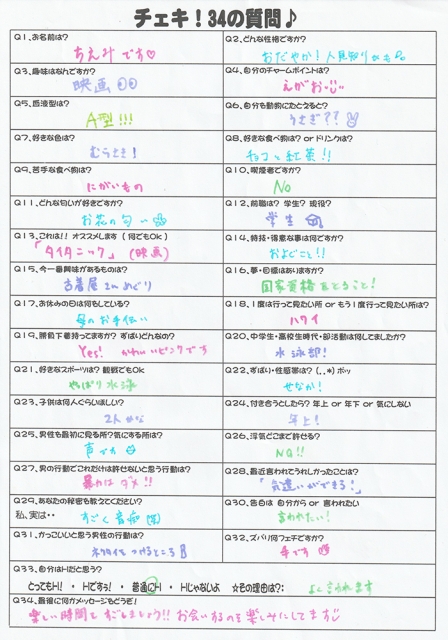 チェキ！34の質問♪
Q1、お名前は？ Q2、どんな性格ですか？
ちえみです♡ おだやか！人見知りかも
Q3、趣味はなんですか？ Q4、自分のチャームポイントは？
映画 えがお
Q5、血液型は？ Q6、自分を動物にたとえると？
A型!!! うさぎ??
Q7、好きな色は？ Q8、好きな食べ物は？ or ドリンクは？
むらさき! チョコと紅茶!!
Q9、苦手な食べ物は？ Q10、喫煙者ですか？
にがいもの No
Q11、どんな匂いが好きですか？ Q12、前職は？ 学生？ 現役？
お花の匂い 学生
Q13、これは!! オススメします（何でもOk） Q14、特技・得意な事は何ですか？
「タイタニック」（映画） およぐこと!!
Q15、今一番興味があるものは？ Q16、夢・目標はありますか？
古着屋さんめぐり 国家資格をとること!
Q17、お休みの日は何をしている？ Q18、1度は行って見たい所 or もう1度行って見たい所は？
母のお手伝い ハワイ
Q19、勝負下着持ってますか？ ずばりどんなの？ Q20、中学生・高校生時代・部活動は何してましたか？
Yes! かわいいピンクです 水泳部!
Q21、好きなスポーツは？ 観戦でもOK Q22、ずばり・性感帯は？（,,*）ポッ
やっぱり水泳 せなか!
Q23、子供は何人ぐらいほしい？ Q24、付き合うとしたら？ 年上 or 年下 or 気にしない
2人かな 年上!
Q25、男性を最初に見る所？気にする所は？ Q26、浮気どこまで許せる？
声でか NG!!
Q27、男の行動でこれだけは許せないと思う行動は？ Q28、最近言われてうれしかったことは？
暴力はダメ!! 「気遣いができる!」
Q29、あなたの秘密を教えてください？ Q30、告白は 自分から or 言われたい
私、実は・・ すごく音痴(笑) 言われたい!
Q31、かっこいいと思う男性の行動は？ Q32、ズバリ何フェチですか？
ネクタイをつけるところ 手です
Q33、自分はHだと思う？
とってもH！ ・ Hですぅ！ ・ 普通にH ・ Hじゃないよ ☆その理由は？： よく言われます
Q34、最後に何かメッセージをどうぞ！
楽しい時間をすごしましょう!! お会いするのを楽しみにしてます